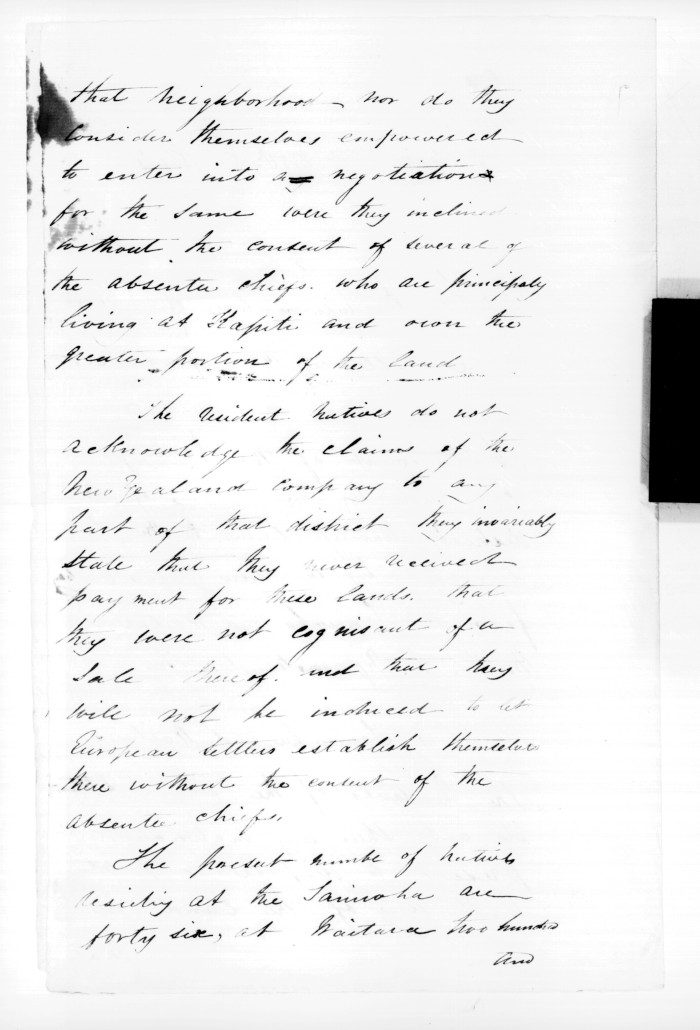 that neighborhood - nor do they
consider themselves empowered
to enter into a negotiation
for the same were they inclined
without the consent of several of
the absentee chiefs. who are principaly
living at Kapiti and own the
greater portion of the land
The resident natives do not
acknowledge the claims of the
New Zealand Company to any
part of that district they invariably
state that they never received
payment for these lands. that
they were not cognisant of a
Sale thereof. and that they
will not be induced to let
European settlers establish themselves
there without the consent of the
absentee chiefs.
The present number of natives
residing at the are
forty six, at Waitara two hundred
and